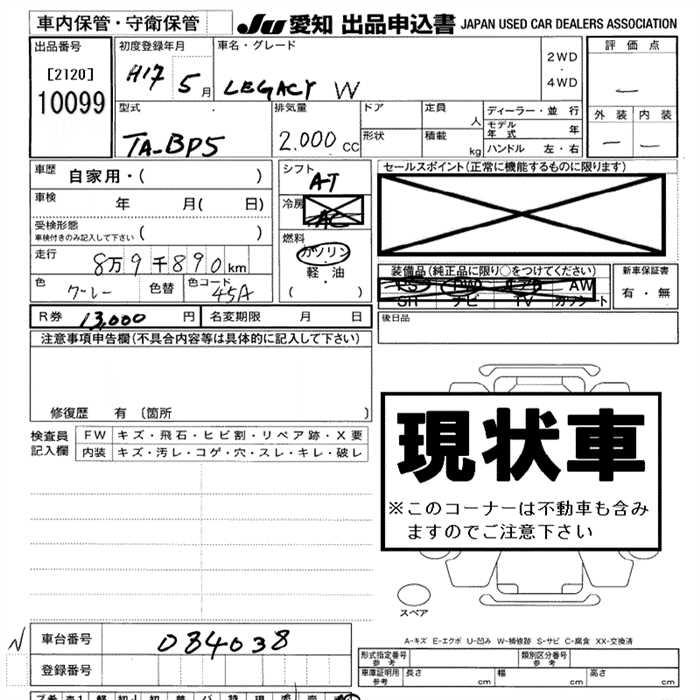 車内保管・守衛保管
JU 愛知 出品申込書 JAPAN USED CAR DEALERS ASSOCIATION
出品番号
[2120]
10099
初度登録年月
H17 5月
車名・グレード
LEGACY W
2WD
・
4WD
評価点
―
外装 内装
― ―
型式
TA-BP5
排気量
2.000 cc
ドア
形状
定員 人
積載 kg
ディーラー・並行
モデル年式 年
ハンドル 左・右
車歴 自家用・( )
車検 年 月( 日)
受検形態
車検付きのみ記入して下さい ( )
走行 8万9千890km
色 グレー 色替 色コード 45A
シフト AT
冷房 AC
燃料
ガソリン
・
軽・油
( )
セールスポイント(正常に機能するものに限ります)
装備品(純正品に限り○をつけてください)
PS PW エアB AW
SH ナビ TV カワシート
新車保証書
有・無
R券 13,000 円 名変期限 月 日
後日品
注意事項申告欄(不具合内容等は具体的に記入して下さい)
修復歴 有 〔箇所 〕
検査員記入欄
FW キズ・飛石・ヒビ割・リペア跡・X要
内装 キズ・汚レ・コゲ・穴・スレ・キレ・破レ
現状車
※このコーナーは不動車も含み
ますのでご注意下さい
スペア
A-キズ E-エクボ U-凹み W-補修跡 S-サビ C-腐食 XX-交換済
N 車台番号 034038
登録番号
形式指定番号
参考
類別区分番号
参考
車庫証明用
参考
長さ cm 幅 cm 高さ cm